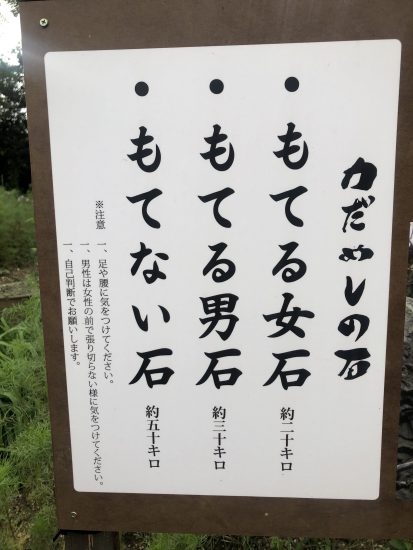 力だめしの石
・もてる女石 約二十キロ
・もてる男石 約三十キロ
・もてない石 約五十キロ
※注意
一、足や腰に気をつけてください。
一、男性は女性の前で張り切らない様に気をつけてください。
一、自己判断でお願いします。